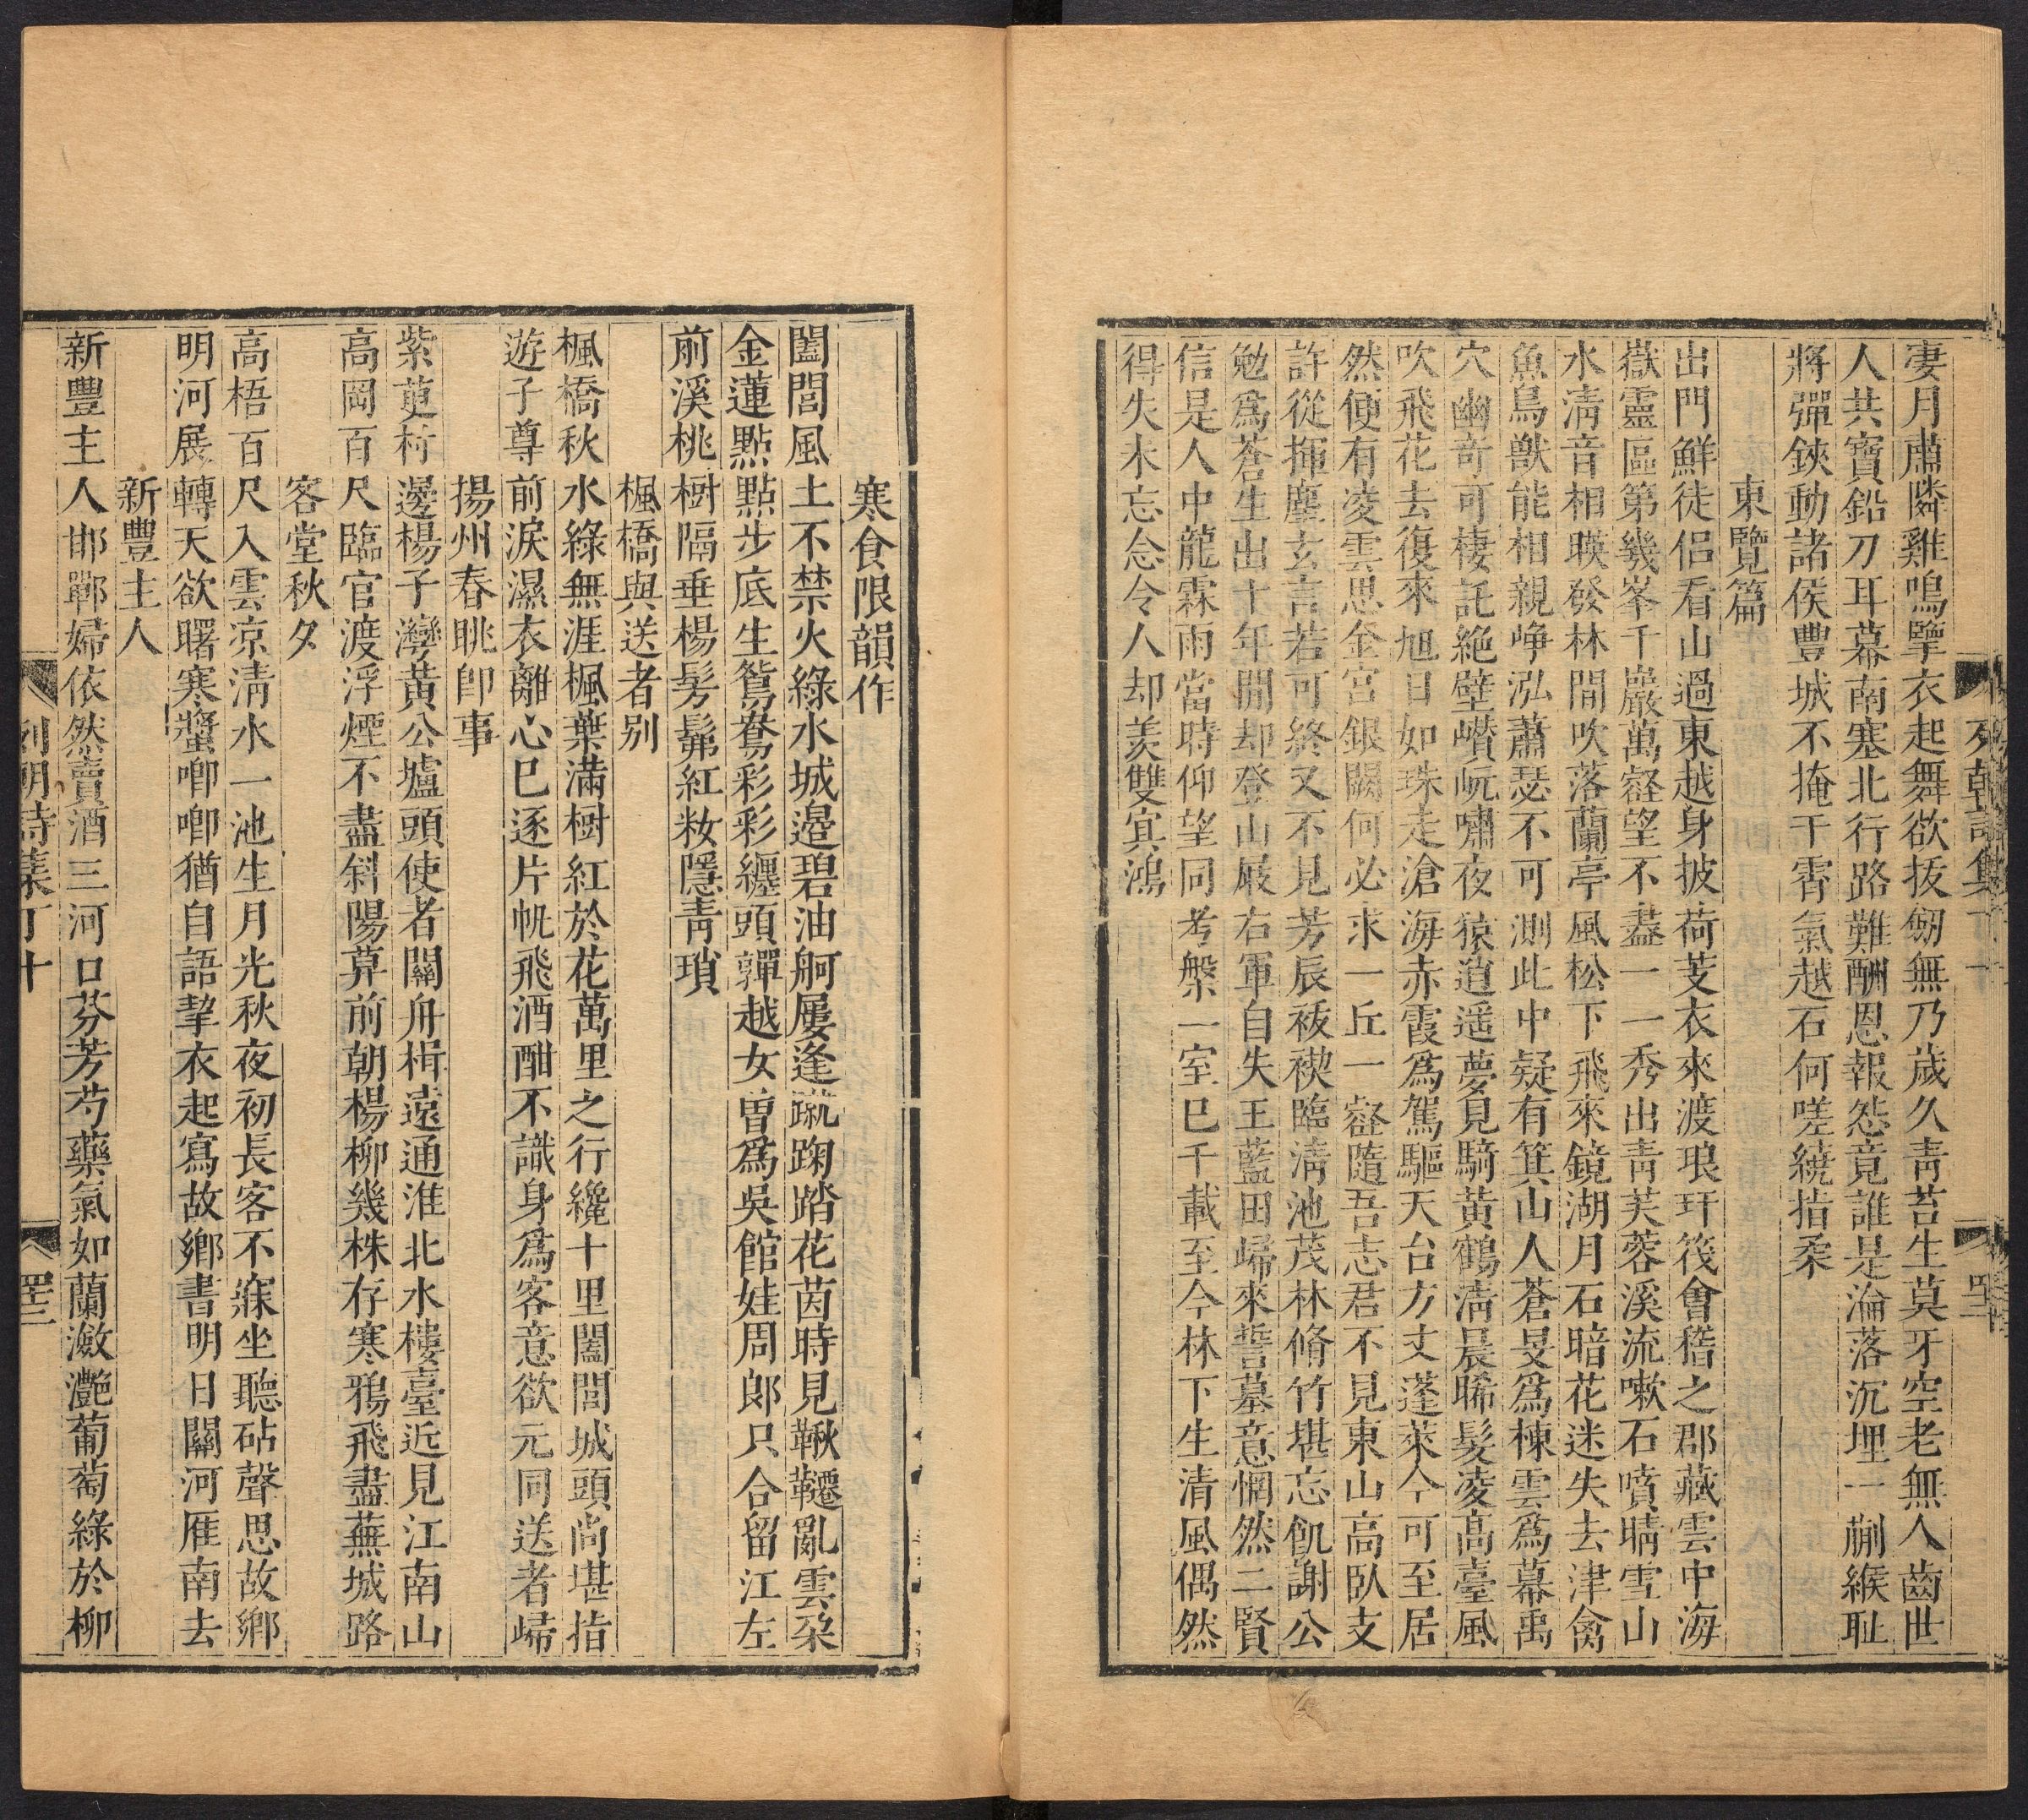 列朝詩集丁十
凄月肅隣雞鳴擥衣起舞欲拔劒無乃歲久靑苔生莫牙空老無人齒世
人共寶鉛刀耳幕南塞北行路難酬恩報怨竟誰是淪落沉埋一蒯緱耻
將彈鋏動諸侯豐城不掩干霄氣越石何嗟繞指柔
東覽篇
出門鮮徒侶看山過東越身披荷芰衣來渡琅玕筏會稽之郡藏雲中海
嶽靈區第幾峯千巖萬壑望不盡一一秀出靑芙蓉溪流嗽石噴晴雪山
水淸音相暎發林間吹落蘭亭風松下飛來鏡湖月石暗花迷失去津禽
魚鳥獸能相親崢泓蕭瑟不可測此中疑有箕山人蒼旻爲棟雲爲幕禹
穴幽奇可棲託絶壁巑岏嘯夜猿逍遙夢見騎黃鶴淸晨晞髮凌高臺風
吹飛花去復來旭日如珠走滄海赤霞爲駕驅天台方丈蓬萊今可至居
然便有凌雲思金宮銀闕何必求一丘一壑隨吾志君不見東山高臥支
許從揮麈玄言若可終又不見芳辰祓禊臨淸池茂林脩竹堪忘飢謝公
勉爲蒼生出十年閒却登山屐右軍自失王藍田歸來誓墓意惘然二賢
信是人中龍霖雨當時仰望同考槃一室已千載至今林下生清風偶然
得失未忘念令人却羨雙冥鴻
寒食限韻作
闔閭風土不禁火綠水城邉碧油舸屢逢蹴踘踏花茵時見鞦韆亂雲朶
金蓮點點步底生鴛鴦彩彩纏頭嚲越女曽爲吳館娃周郞只合留江左
前溪桃樹隔垂楊髣髴紅妝隱靑瑣
楓橋與送者別
楓橋秋水綠無涯楓葉滿樹紅於花萬里之行纔十里闔閭城頭尙堪指
遊子尊前淚濕衣離心已逐片帆飛酒酣不識身爲客意欲元同送者歸
揚州春眺卽事
紫萸村邊楊子灣黃公壚頭使者關舟楫遠通淮北水樓臺近見江南山
高岡百尺臨官渡浮煙不盡斜陽莫前朝楊柳幾株存寒鴉飛盡蕪城路
客堂秋夕
高梧百尺入雲凉淸水一池生月光秋夜初長客不寐坐聽砧聲思故鄕
明河展轉天欲曙寒螿喞喞猶自語挈衣起寫故鄕書明日關河雁南去
新豐主人
新豐主人邯鄲婦依然賣酒三河口芬芳芍藥氣如蘭瀲灔葡萄綠於柳
列朝詩集丁十